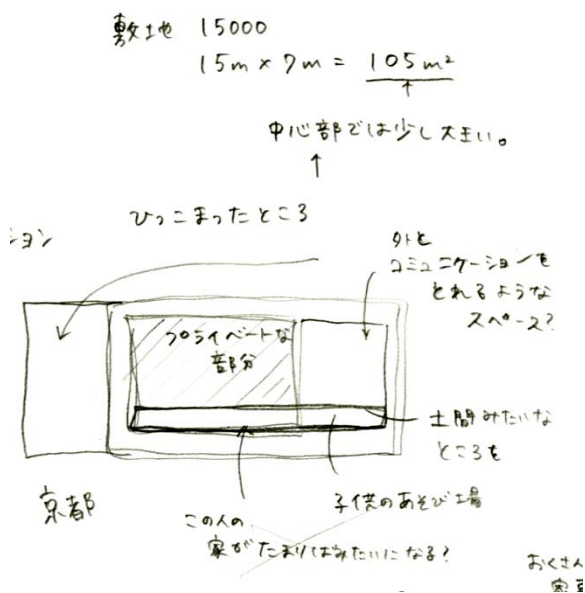 敷地 15000
15m × 7m = 105m²
中心部では少し大きい。
ひっこまったところ
ション
外と
コミュニケーションを
とれるような
スペース?
プライベートな
部分
土間みたいな
ところを
子供のあそび場
京都
この人の
家がたまりばみたいになる?
おくさん